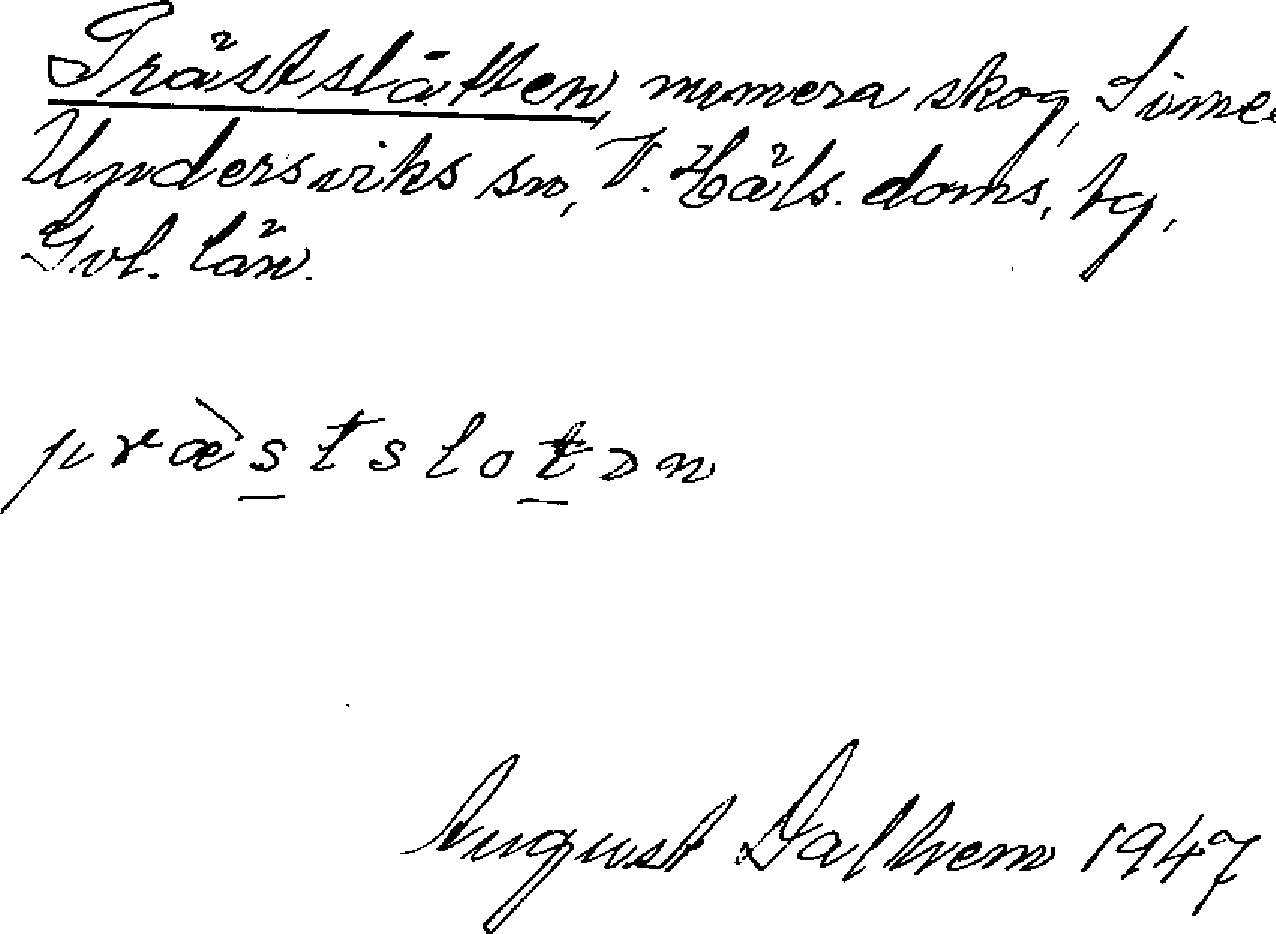 Prästslåtten, numera skog, Sime
Undersviks sn, V. Häls. doms. tg,
Gvl. län.
præ̀s̲tslot̲ən
August Dalhem 1947